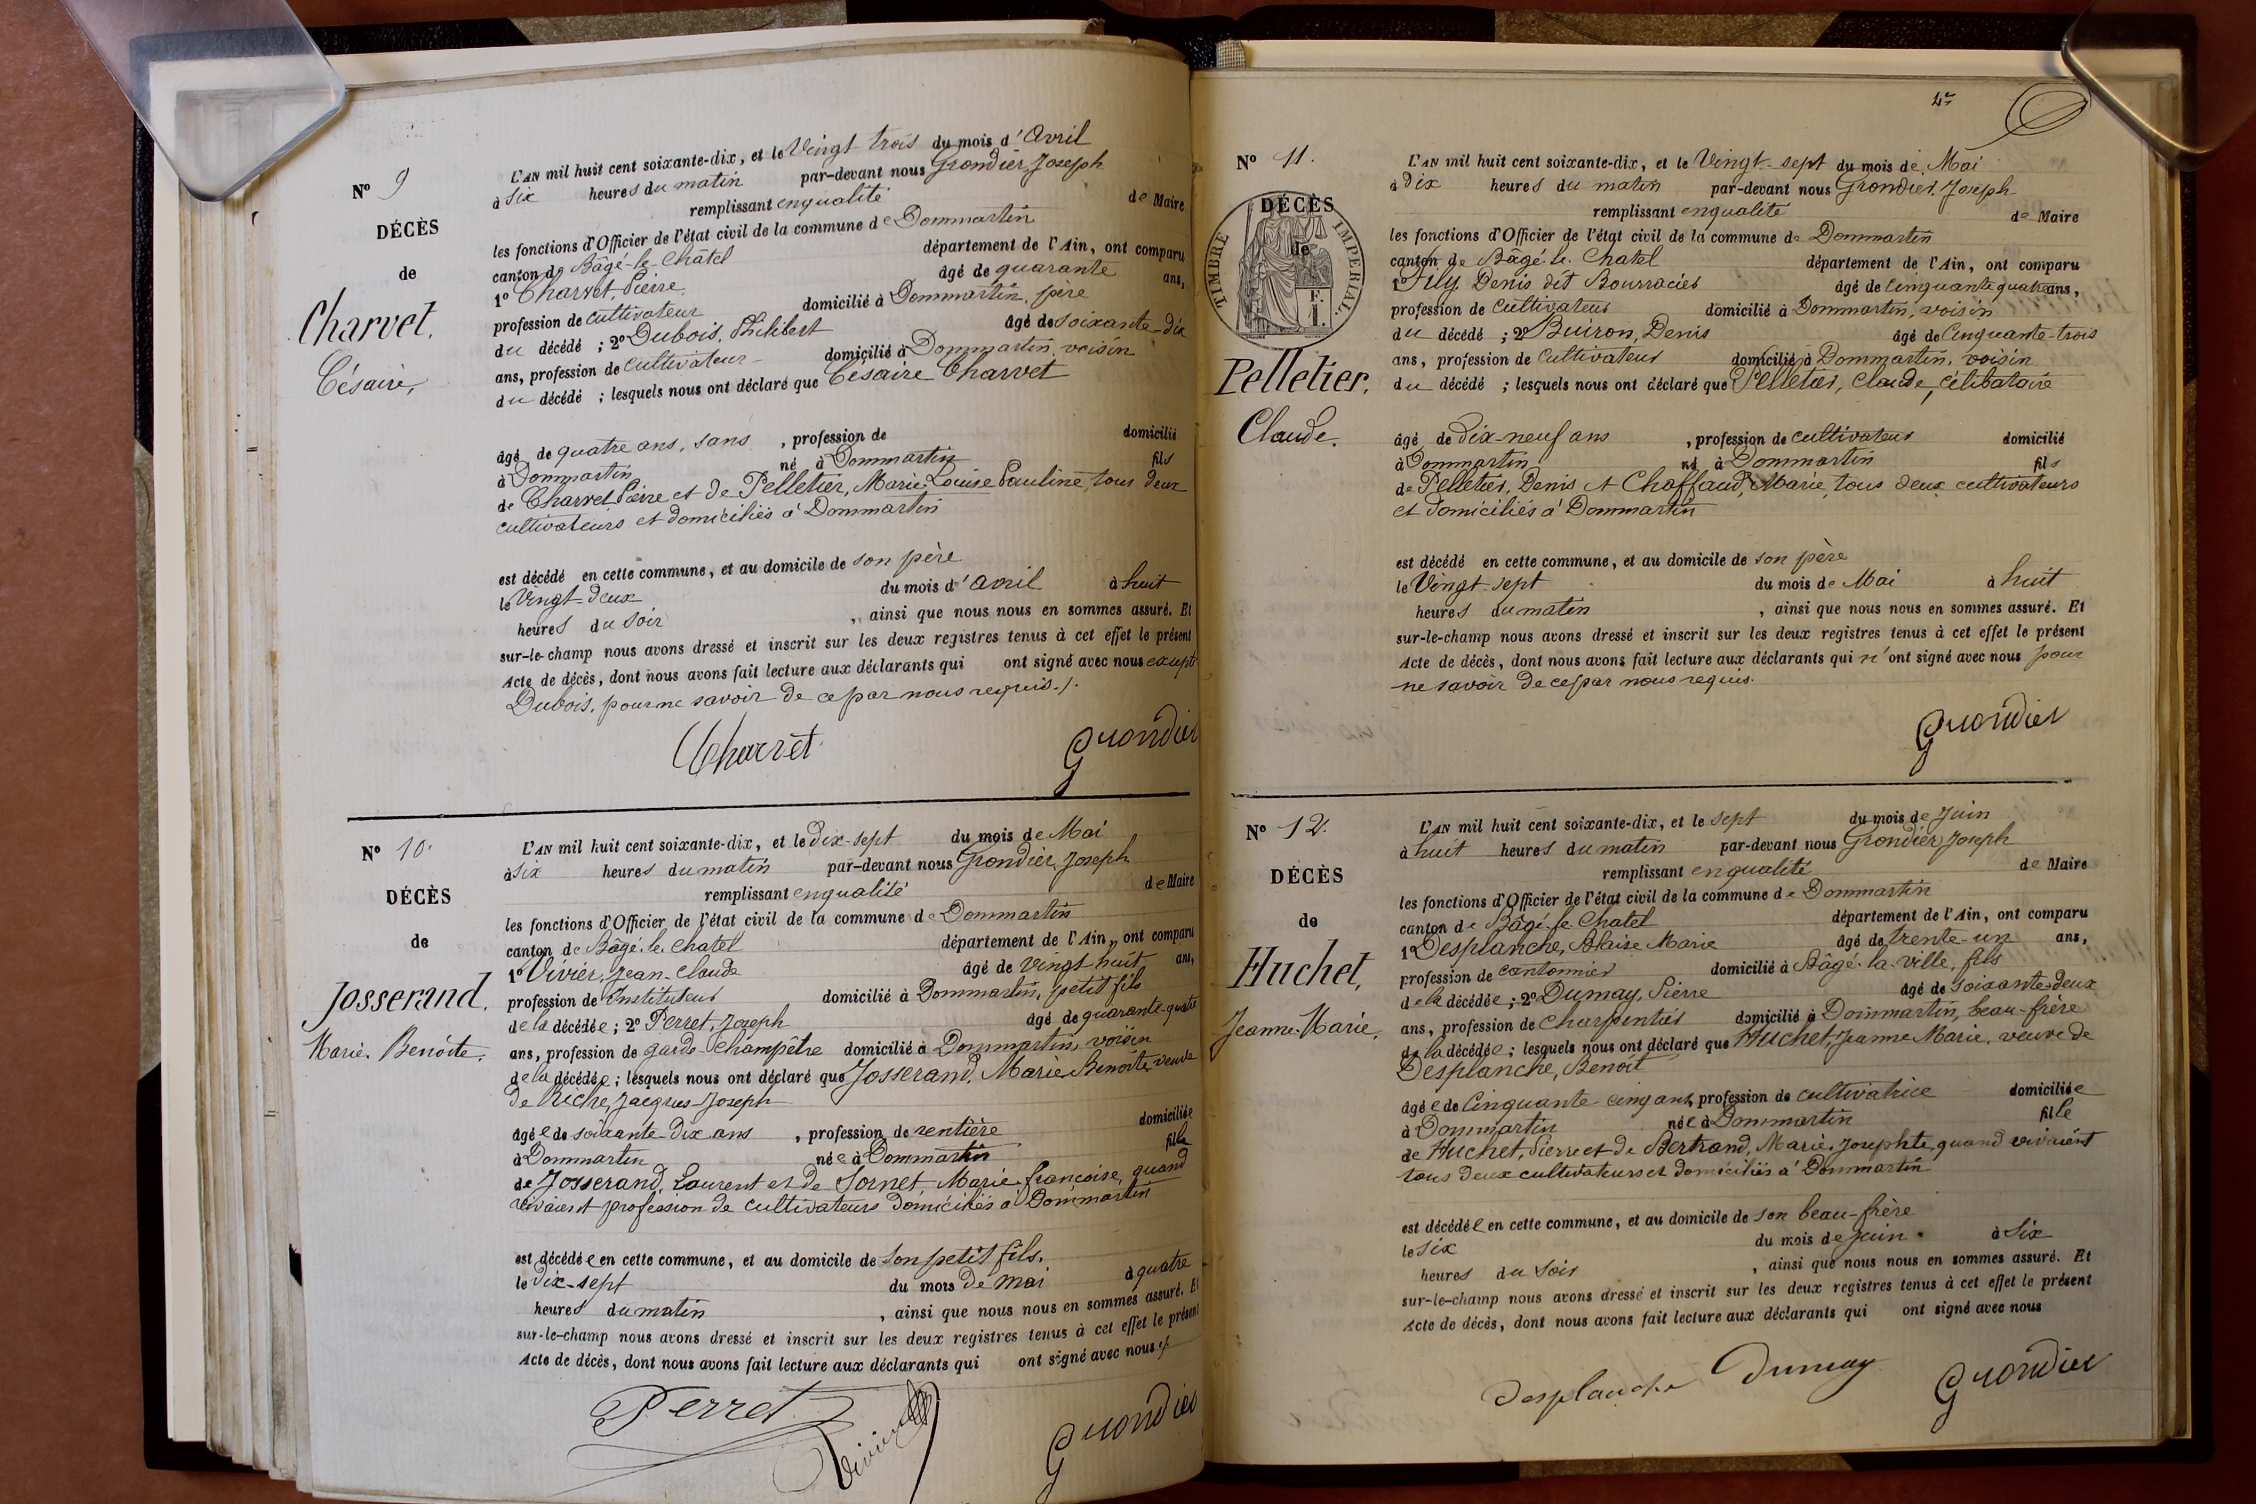 N° 9
DÉCÈS
de
Charvet,
Césaire,
L'AN mil huit cent soixante-dix, et le Vingt trois du mois d'Avril
à six heures du matin par-devant nous Grondier, Joseph
remplissant en qualité de Maire
les fonctions d'Officier de l'état civil de la commune de Dommartin
canton de Bâgé-le-Châtel département de l'Ain, ont comparu
1° Charvet, Pierre âgé de quarante ans,
profession de cultivateur domicilié à Dommartin, père
du décédé ; 2° Dubois, Philibert âgé de soixante-dix
ans, profession de cultivateur domicilié à Dommartin, voisin
du décédé ; lesquels nous ont déclaré que Césaire Charvet
âgé de quatre ans, sans , profession de domicilié
à Dommartin né à Dommartin fils
de Charvet Pierre et de Pelletier, Marie Louise Pauline, tous deux
cultivateurs et domiciliés à Dommartin
est décédé en cette commune, et au domicile de son père
le Vingt-deux du mois d'avril à huit
heures du soir , ainsi que nous nous en sommes assuré. Et
sur-le-champ nous avons dressé et inscrit sur les deux registres tenus à cet effet le présent
Acte de décès, dont nous avons fait lecture aux déclarants qui ont signé avec nous excepté
Dubois, pour ne savoir de ce par nous requis./.
Charvet Grondier
N° 10.
DÉCÈS
de
Josserand,
Marie-Benoite,
L'AN mil huit cent soixante-dix, et le dix-sept du mois de Mai
à six heures du matin par-devant nous Grondier, Joseph
remplissant en qualité de Maire
les fonctions d'Officier de l'état civil de la commune de Dommartin
canton de Bâgé-le-Chatel département de l'Ain, ont comparu
1° Vivier, Jean-Claude âgé de vingt huit ans,
profession de Instituteur domicilié à Dommartin, petit fils
de la décédée ; 2° Perret, Joseph âgé de quarante-quatre
ans, profession de garde-champêtre domicilié à Dommartin, voisin
de la décédée ; lesquels nous ont déclaré que Josserand, Marie-Benoite, veuve
de Riche, Jacques-Joseph
âgée de soixante-dix ans , profession de rentière domiciliée
à Dommartin née à Dommartin fille
de Josserand, Laurent et de Sornet Marie-françoise, quand
vivaient profession de cultivateurs domiciliés à Dommartin
est décédée en cette commune, et au domicile de son petit fils,
le dix-sept du mois de mai à quatre
heures du matin , ainsi que nous nous en sommes assuré. Et
sur-le-champ nous avons dressé et inscrit sur les deux registres tenus à cet effet le présent
Acte de décès, dont nous avons fait lecture aux déclarants qui ont signé avec nous
Perret Vivier Grondier
N° 11.
TIMBRE IMPÉRIAL.
DÉCÈS
de
Pelletier,
Claude.
L'AN mil huit cent soixante-dix, et le Vingt-sept du mois de Mai
à dix heures du matin par-devant nous Grondier, Joseph
remplissant en qualité de Maire
les fonctions d'Officier de l'état civil de la commune de Dommartin
canton de Bâgé-le-Chatel département de l'Ain, ont comparu
1° Fily Denis dit Bourracier âgé de Cinquante quatre ans,
profession de cultivateur domicilié à Dommartin, voisin
du décédé ; 2° Buiron, Denis âgé de Cinquante-trois
ans, profession de Cultivateur domicilié à Dommartin, voisin
du décédé ; lesquels nous ont déclaré que Pelletier, Claude, célibataire
âgé de dix-neuf ans , profession de cultivateur domicilié
à Dommartin né à Dommartin fils
de Pelletier, Denis et Chaffaud, Marie, tous deux cultivateurs
et domiciliés à Dommartin
est décédé en cette commune, et au domicile de son père
le Vingt-sept du mois de Mai à huit
heures du matin , ainsi que nous nous en sommes assuré. Et
sur-le-champ nous avons dressé et inscrit sur les deux registres tenus à cet effet le présent
Acte de décès, dont nous avons fait lecture aux déclarants qui n'ont signé avec nous pour
ne savoir de ce par nous requis.
Grondier
N° 12.
DÉCÈS
de
Huchet,
Jeanne-Marie,
L'AN mil huit cent soixante-dix, et le sept du mois de Juin
à huit heures du matin par-devant nous Grondier, Joseph
remplissant en qualité de Maire
les fonctions d'Officier de l'état civil de la commune de Dommartin
canton de Bâgé-le-Chatel département de l'Ain, ont comparu
1° Desplanche, Blaise Marie âgé de trente-un ans,
profession de cantonnier domicilié à Bâgé-la-ville, fils
de la décédée ; 2° Dumay, Pierre âgé de soixante-deux
ans, profession de Charpentier domicilié à Dommartin, beau-frère
de la décédée ; lesquels nous ont déclaré que Huchet, Jeanne Marie, veuve de
Desplanche, Benoît
âgée de Cinquante-cinq ans, profession de cultivatrice domiciliée
à Dommartin née à Dommartin fille
de Huchet, Pierre et de Bertrand, Marie-Josephte, quand vivaient
tous deux cultivateurs et domiciliés à Dommartin
est décédée en cette commune, et au domicile de son beau-frère
le six du mois de juin à six
heures du soir , ainsi que nous nous en sommes assuré. Et
sur-le-champ nous avons dressé et inscrit sur les deux registres tenus à cet effet le présent
Acte de décès, dont nous avons fait lecture aux déclarants qui ont signé avec nous
Desplanche Dumay Grondier